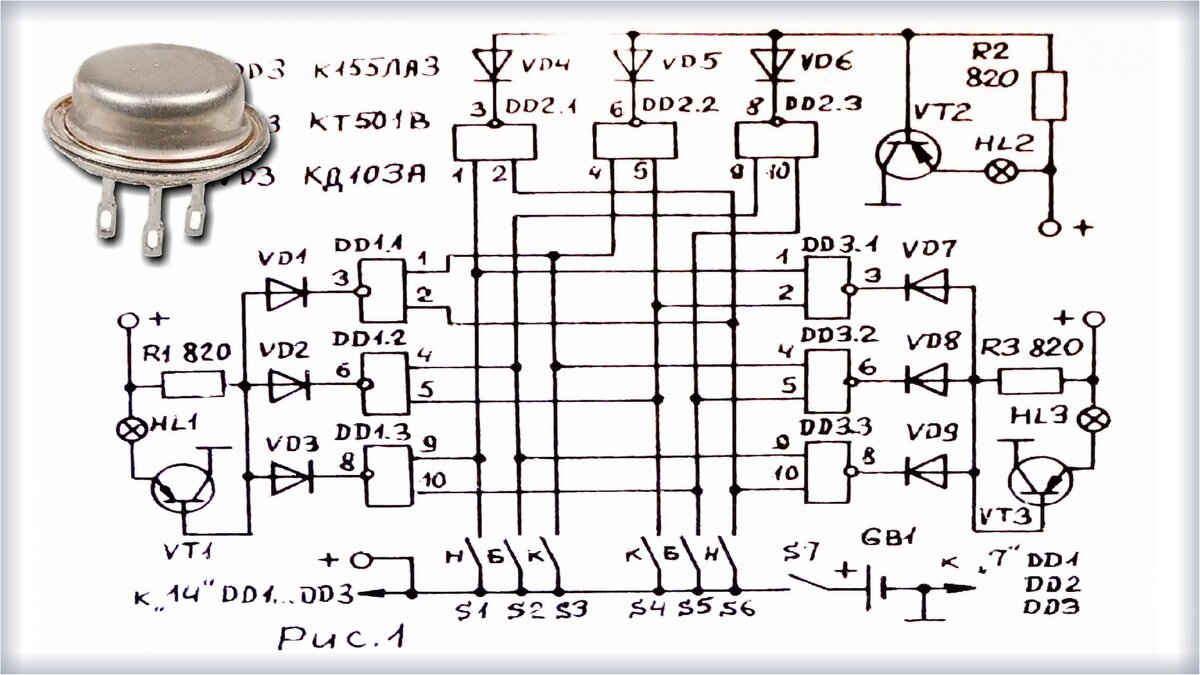 DD3 К155ЛА3
3 КТ501В
VD3 КД103А
VD4
VD5
VD6
R2
820
3 DD2.1
6 DD2.2
8 DD2.3
VT2
HL2
1 2
4 5
9 10
+
VD1
DD1.1
3
1
2
DD3.1
1
2
3
VD7
+
R1 820
VD2
DD1.2
6
4
5
DD3.2
4
5
6
VD8
+
R3 820
HL1
VD3
DD1.3
8
9
10
DD3.3
9
10
8
VD9
HL3
VT1
VT3
+
Н Б К
К Б Н
S7
+
GB1
К „14" DD1...DD3
S1 S2 S3
S4 S5 S6
К „7" DD1
DD2
DD3
Рис.1